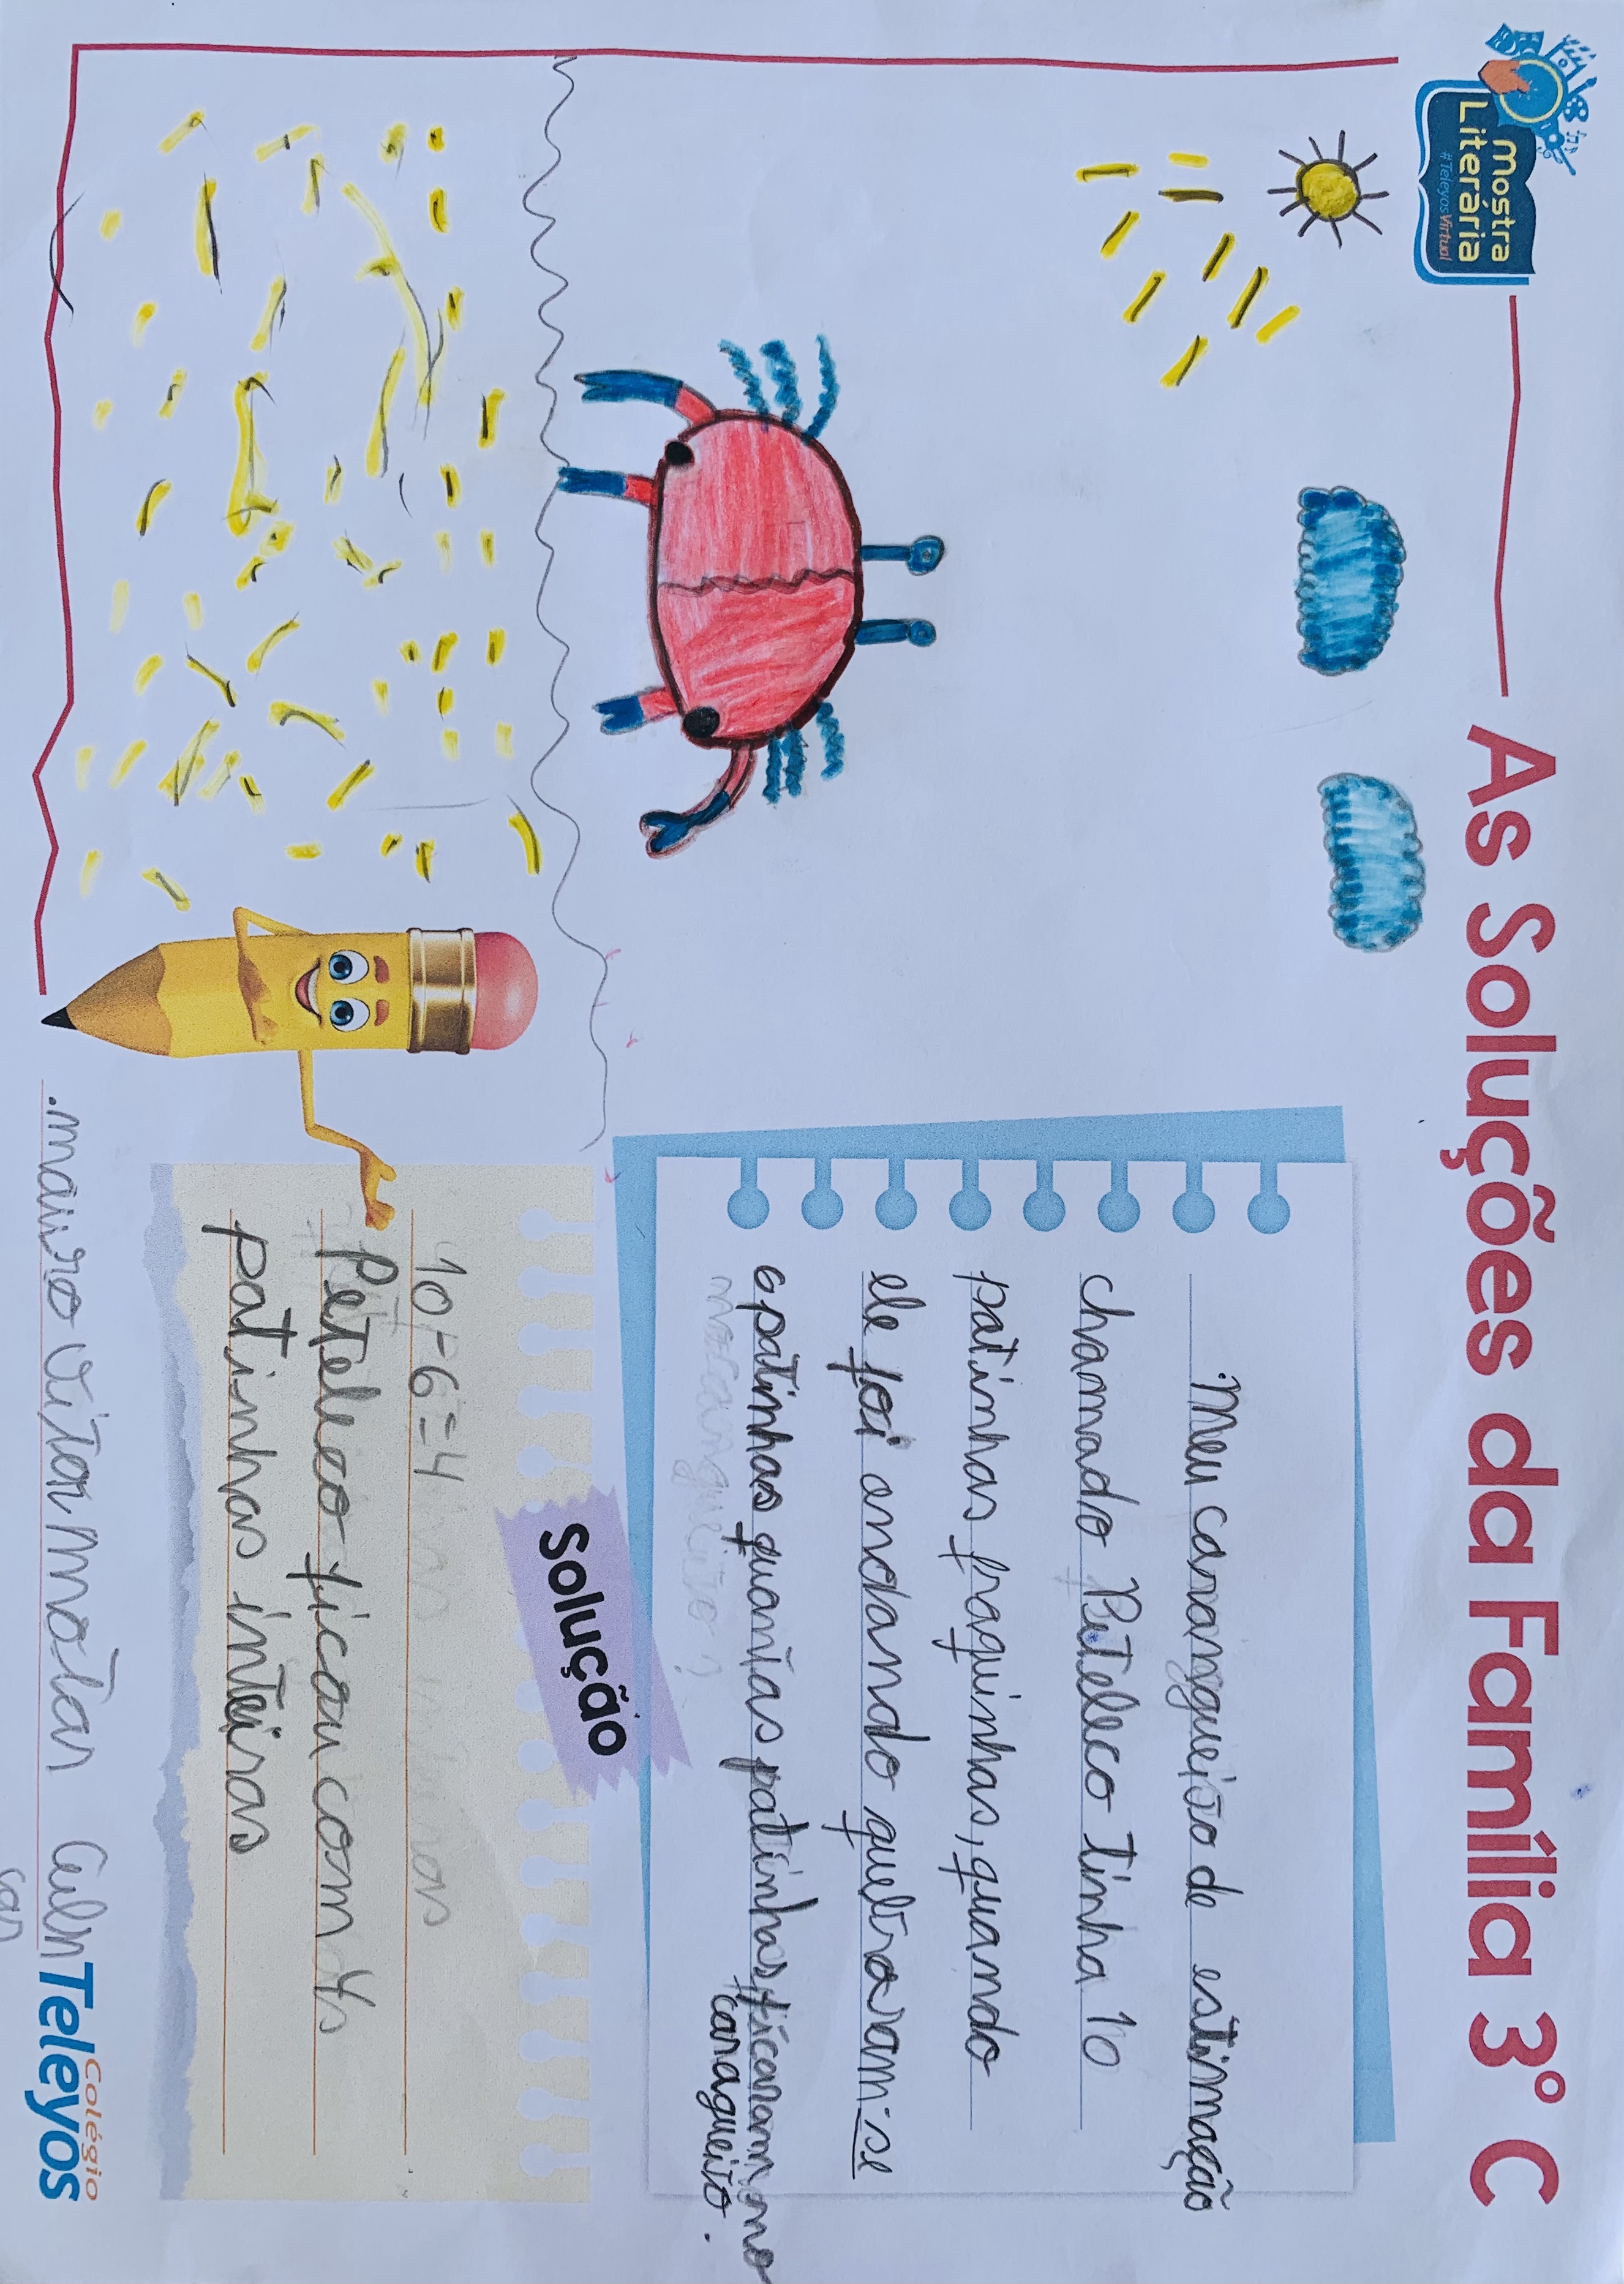 Mostra
Literária
#TeleyosVirtual
As Soluções da Família 3° C
Meu carangueijo de estimação
chamado Peteleco tinha 10
patinhas fraquinhas, quando
ele foi andando quebraram-se
6 patinhas quantas patinhas, ficaram, no
caragueijo.
Solução
10-6=4
Peteleco ficou com 4
patinhas inteiras
Colégio
Teleyos